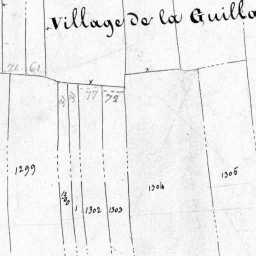 Village de la Guilla
71 61
77 72
1299
1304
1305
1302 1303